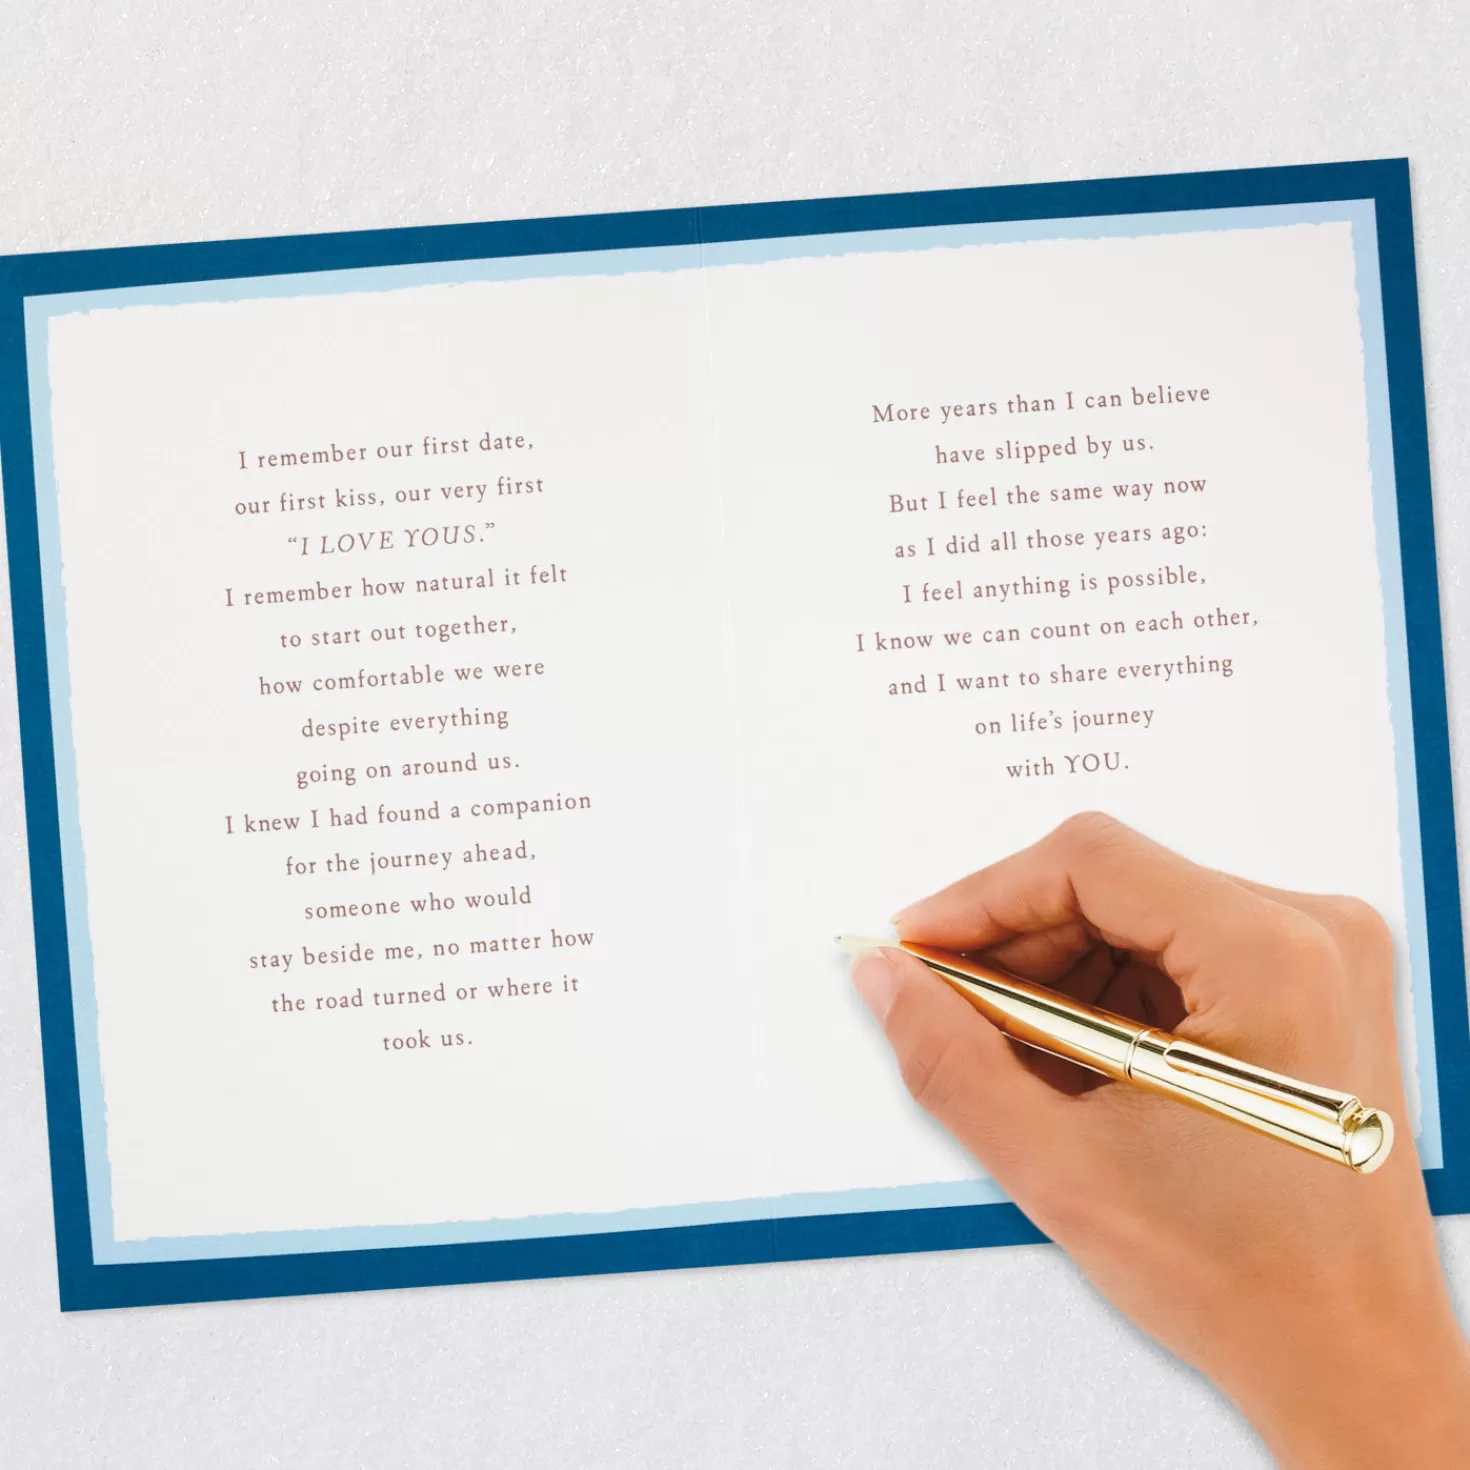 I remember our first date,
our first kiss, our very first
“I LOVE YOUS.”
I remember how natural it felt
to start out together,
how comfortable we were
despite everything
going on around us.
I knew I had found a companion
for the journey ahead,
someone who would
stay beside me, no matter how
the road turned or where it
took us.
More years than I can believe
have slipped by us.
But I feel the same way now
as I did all those years ago:
I feel anything is possible,
I know we can count on each other,
and I want to share everything
on life’s journey
with YOU.